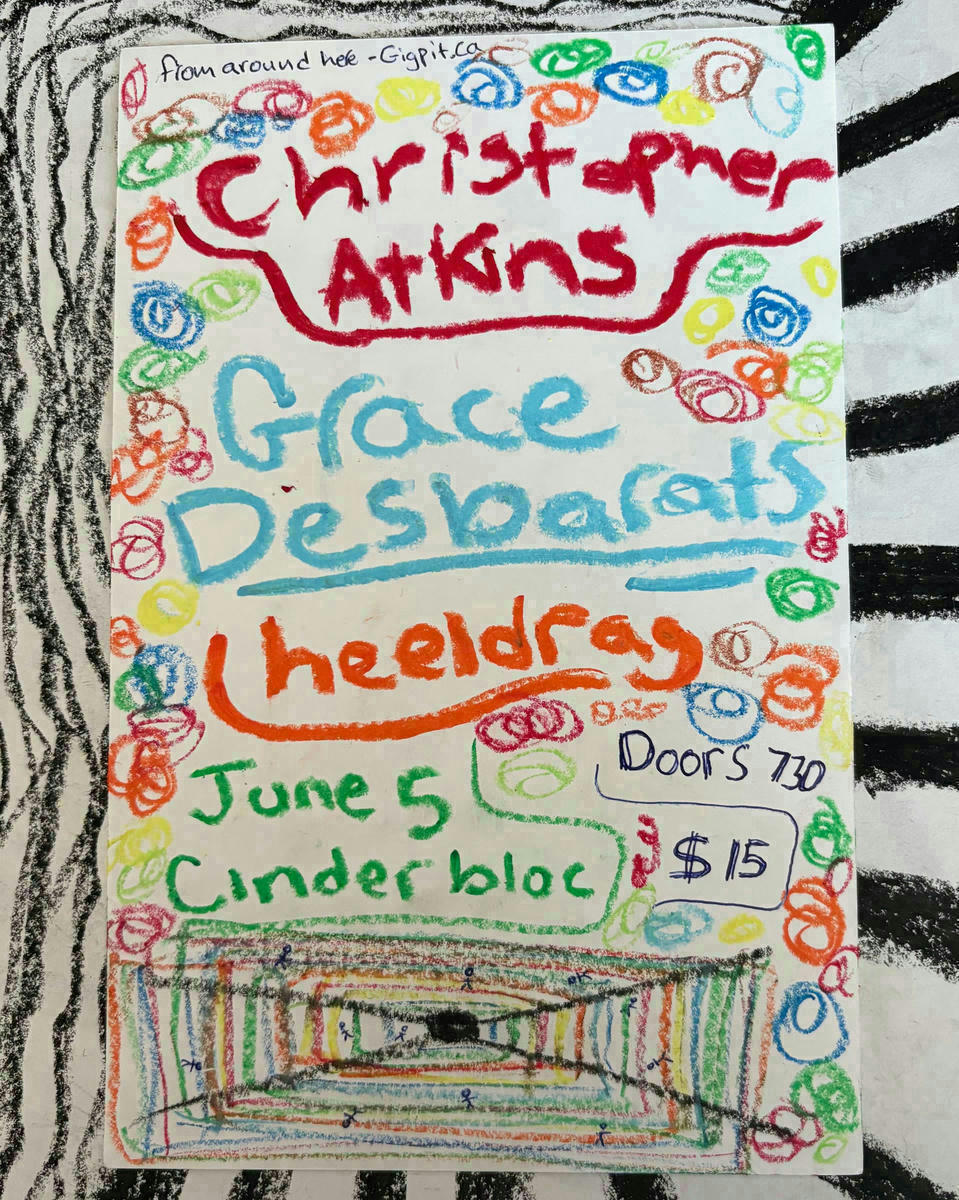 from around here - Gigpit.ca
Christopher
Atkins
Grace
Desbarats
heeldrag
Doors 730
June 5
$15
Cinder bloc